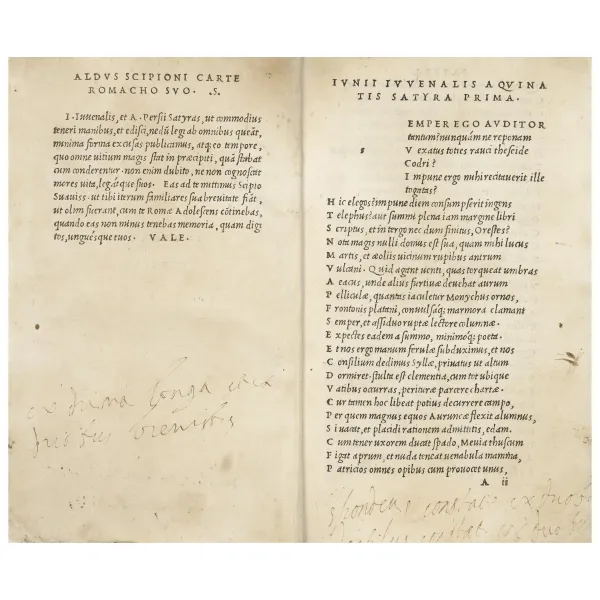 ALDVS SCIPIONI CARTE
ROMACHO SVO . .S.
I. Iuuenalis, et A. Persii Satyras, ut commodius
teneri manibus, et edisci, nedū legi ab omnibus queāt,
minima forma excusas publicamus, atq; eo tempore,
quo omne uitium magis stat in præcipiti, quā stabat
cum conderentur. non enim dubito, ne non cognoscat
meres uita, legātque suos. Eas ad te mittimus Scipio
Suauiss. ut tibi iterum familiares sua breuitate fiāt,
ut olim fuerant, cum te Romæ Adolescens cōtinebas,
quando eas non minus tenebas memoria, quam digi
tos, unguésque tuos. VALE.
ex prima longa et
duobus brevibus
IVNII IVVENALIS AQVINA
TIS SATYRA PRIMA.
s
EMPER EGO AVDITOR
tantum? nunquám ne reponam
V exatus toties rauci theseide
Codri?
I mpune ergo mihi recitauerit ille
togatas?
H ic elegos? impune diem consumpserit ingens
T elephus? aut summi plena iam margine libri
S criptus, et in tergo nec dum finitus, Orestes?
N ota magis nulli domus est sua, quam mihi lucus
M artis, et æoliis uicinum rupibus antrum
V ulcani. Quid agant uenti, quas torqueat umbras
A eacus, unde alius furtiuæ deuehat aurum
P elliculæ, quantas iaculetur Monychus ornos,
F rontonis platani, conuulsáq; marmora clamant
S emper, et assiduo ruptæ lectore columnæ.
E xpectes eadem a summo, minimóq; poeta.
E t nos ergo manum ferulæ subduximus, et nos
C onsilium dedimus Syllæ, priuatus ut altum
D ormiret. stulta est clementia, cum tot ubique
V atibus occurras, perituræ parcere chartæ.
C ur tamen hoc libeat potius decurrere campo,
P er quem magnus equos Auruncæ flexit alumnus,
S i uacat, et placidi rationem admittitis, edam.
C um tener uxorem ducat spado, Meuia thuscum
F igat aprum, et nuda teneat uenabula mamma,
P atricios omnes opibus cum prouocet unus,
A ii
spondeus constat ex duobus
constat ex duo